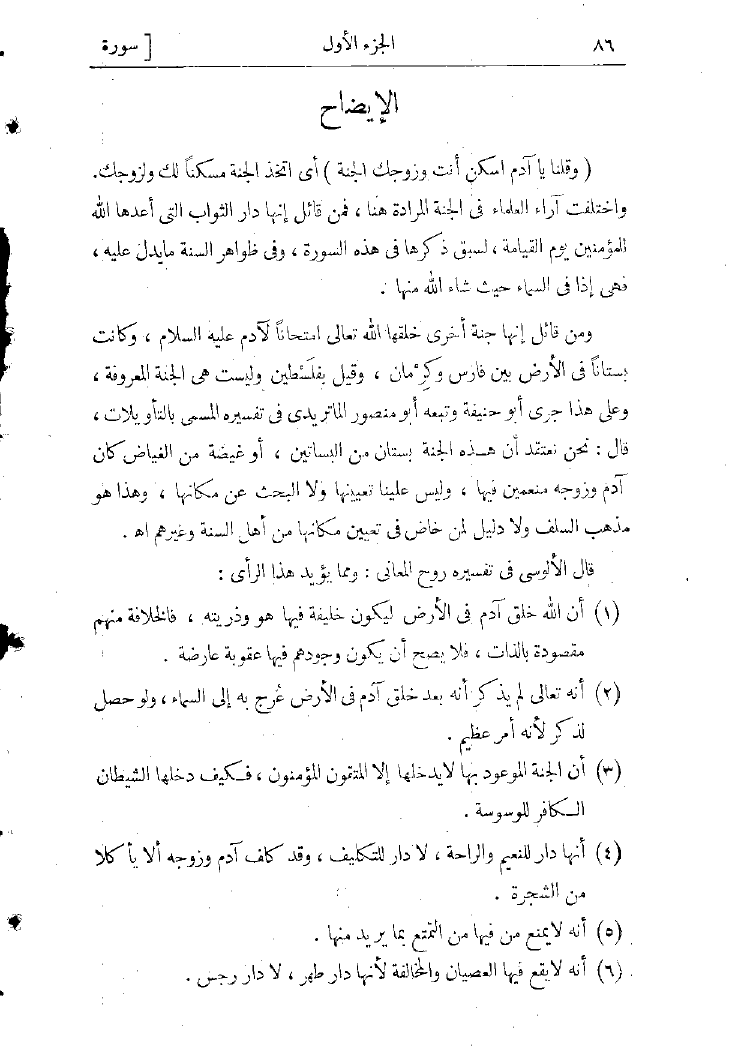 ٨٦ الجزء الأول [ سورة
الإيضاح
( وقلنا يا آدم اسكن أنت وزوجك الجنة ) أى اتخذ الجنة مسكناً لك ولزوجك.
واختلفت آراء العلماء فى الجنة المرادة هنا ، فمن قائل إنها دار الثواب التى أعدها الله
للمؤمنين يوم القيامة ، لسبق ذكرها فى هذه السورة ، وفى ظواهر السنة مايدل عليه ،
فهى إذا فى السماء حيث شاء الله منها .
ومن قائل إنها جنة أخرى خلقها الله تعالى امتحاناً لآدم عليه السلام ، وكانت
بستاناً فى الأرض بين فارس وكِرْمان ، وقيل بفلَسْطين وليست هى الجنة المعروفة ،
وعلى هذا جرى أبو حنيفة وتبعه أبو منصور الماتريدى فى تفسيره المسمى بالتأويلات ،
قال : نحن نعتقد أن هذه الجنة بستان من البساتين ، أو غيضة من الغياض كان
آدم وزوجه منعمين فيها ، وليس علينا تعيينها ولا البحث عن مكانها ، وهذا هو
مذهب السلف ولا دليل لمن خاض فى تعيين مكانها من أهل السنة وغيرهم اه .
قال الألوسى فى تفسيره روح المعانى : ومما يؤيد هذا الرأى :
(١) أن الله خلق آدم فى الأرض ليكون خليفة فيها هو وذريته ، فالخلافة منهم
مقصودة بالذات ، فلا يصح أن يكون وجودهم فيها عقوبة عارضة .
(٢) أنه تعالى لم يذكر أنه بعد خلق آدم فى الأرض عُرج به إلى السماء ، ولو حصل
لذكر لأنه أمر عظيم .
(٣) أن الجنة الموعود بها لايدخلها إلا المتقون المؤمنون ، فكيف دخلها الشيطان
الكافر للوسوسة .
(٤) أنها دار للنعيم والراحة ، لا دار للتكليف ، وقد كلف آدم وزوجه ألا يأكلا
من الشجرة .
(٥) أنه لايمنع من فيها من التمتع بما يريد منها .
(٦) أنه لايقع فيها العصيان والمخالفة لأنها دار طهر ، لا دار رجس .